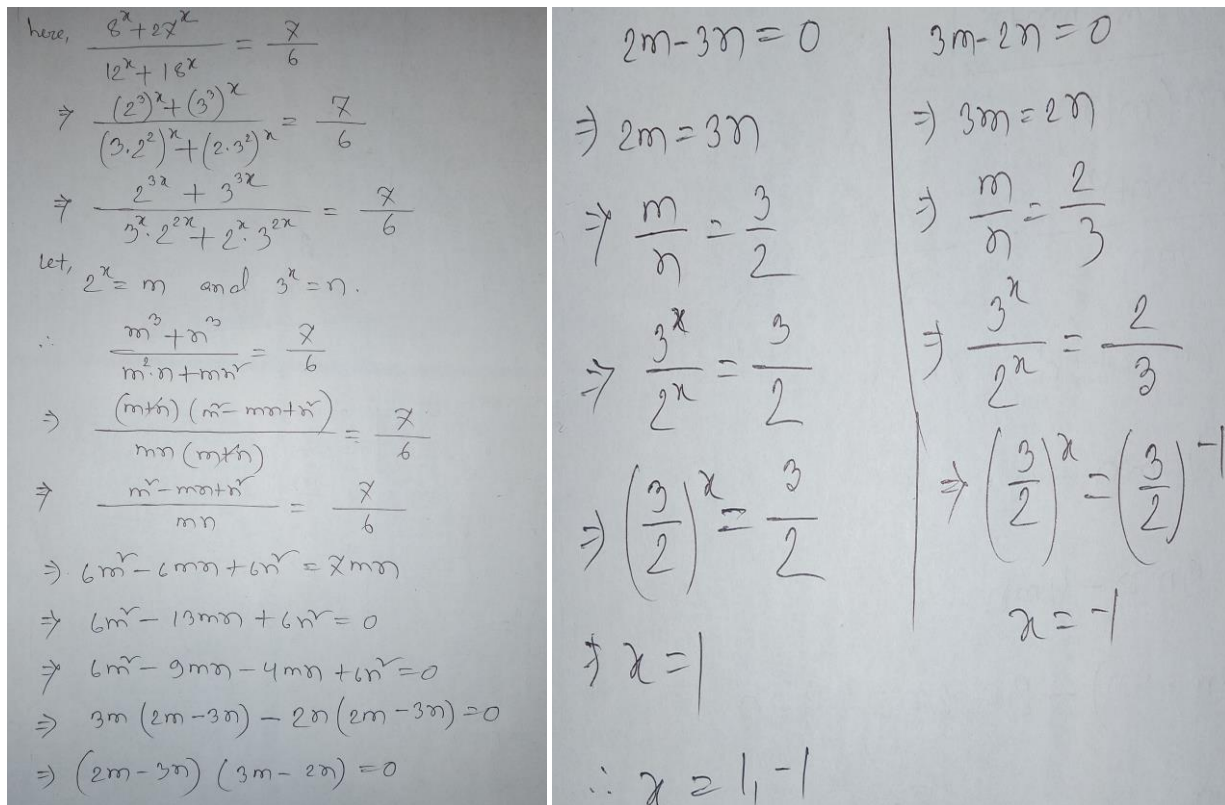 here, (8^x + 27^x)/(12^x + 18^x) = 7/6
⇒ ((2^3)^x + (3^3)^x)/((3.2^2)^x + (2.3^2)^x) = 7/6
⇒ (2^3x + 3^3x)/(3^x. 2^2x + 2^x. 3^2x) = 7/6
Let, 2^x = m and 3^x = n.
∴ (m^3 + n^3)/(m^2.n + mn^2) = 7/6
⇒ ((m+n) (m^2 - mn + n^2))/(mn (m+n)) = 7/6
⇒ (m^2 - mn + n^2)/(mn) = 7/6
⇒ 6m^2 - 6mn + 6n^2 = 7mn
⇒ 6m^2 - 13mn + 6n^2 = 0
⇒ 6m^2 - 9mn - 4mn + 6n^2 = 0
⇒ 3m (2m - 3n) - 2n (2m - 3n) = 0
⇒ (2m - 3n) (3m - 2n) = 0
2m - 3n = 0
⇒ 2m = 3n
⇒ m/n = 3/2
⇒ 3^x/2^x = 3/2
⇒ (3/2)^x = 3/2
⇒ x = 1
3m - 2n = 0
⇒ 3m = 2n
⇒ m/n = 2/3
⇒ 3^x/2^x = 2/3
⇒ (3/2)^x = (3/2)^-1
x = -1
∴ x = 1, -1